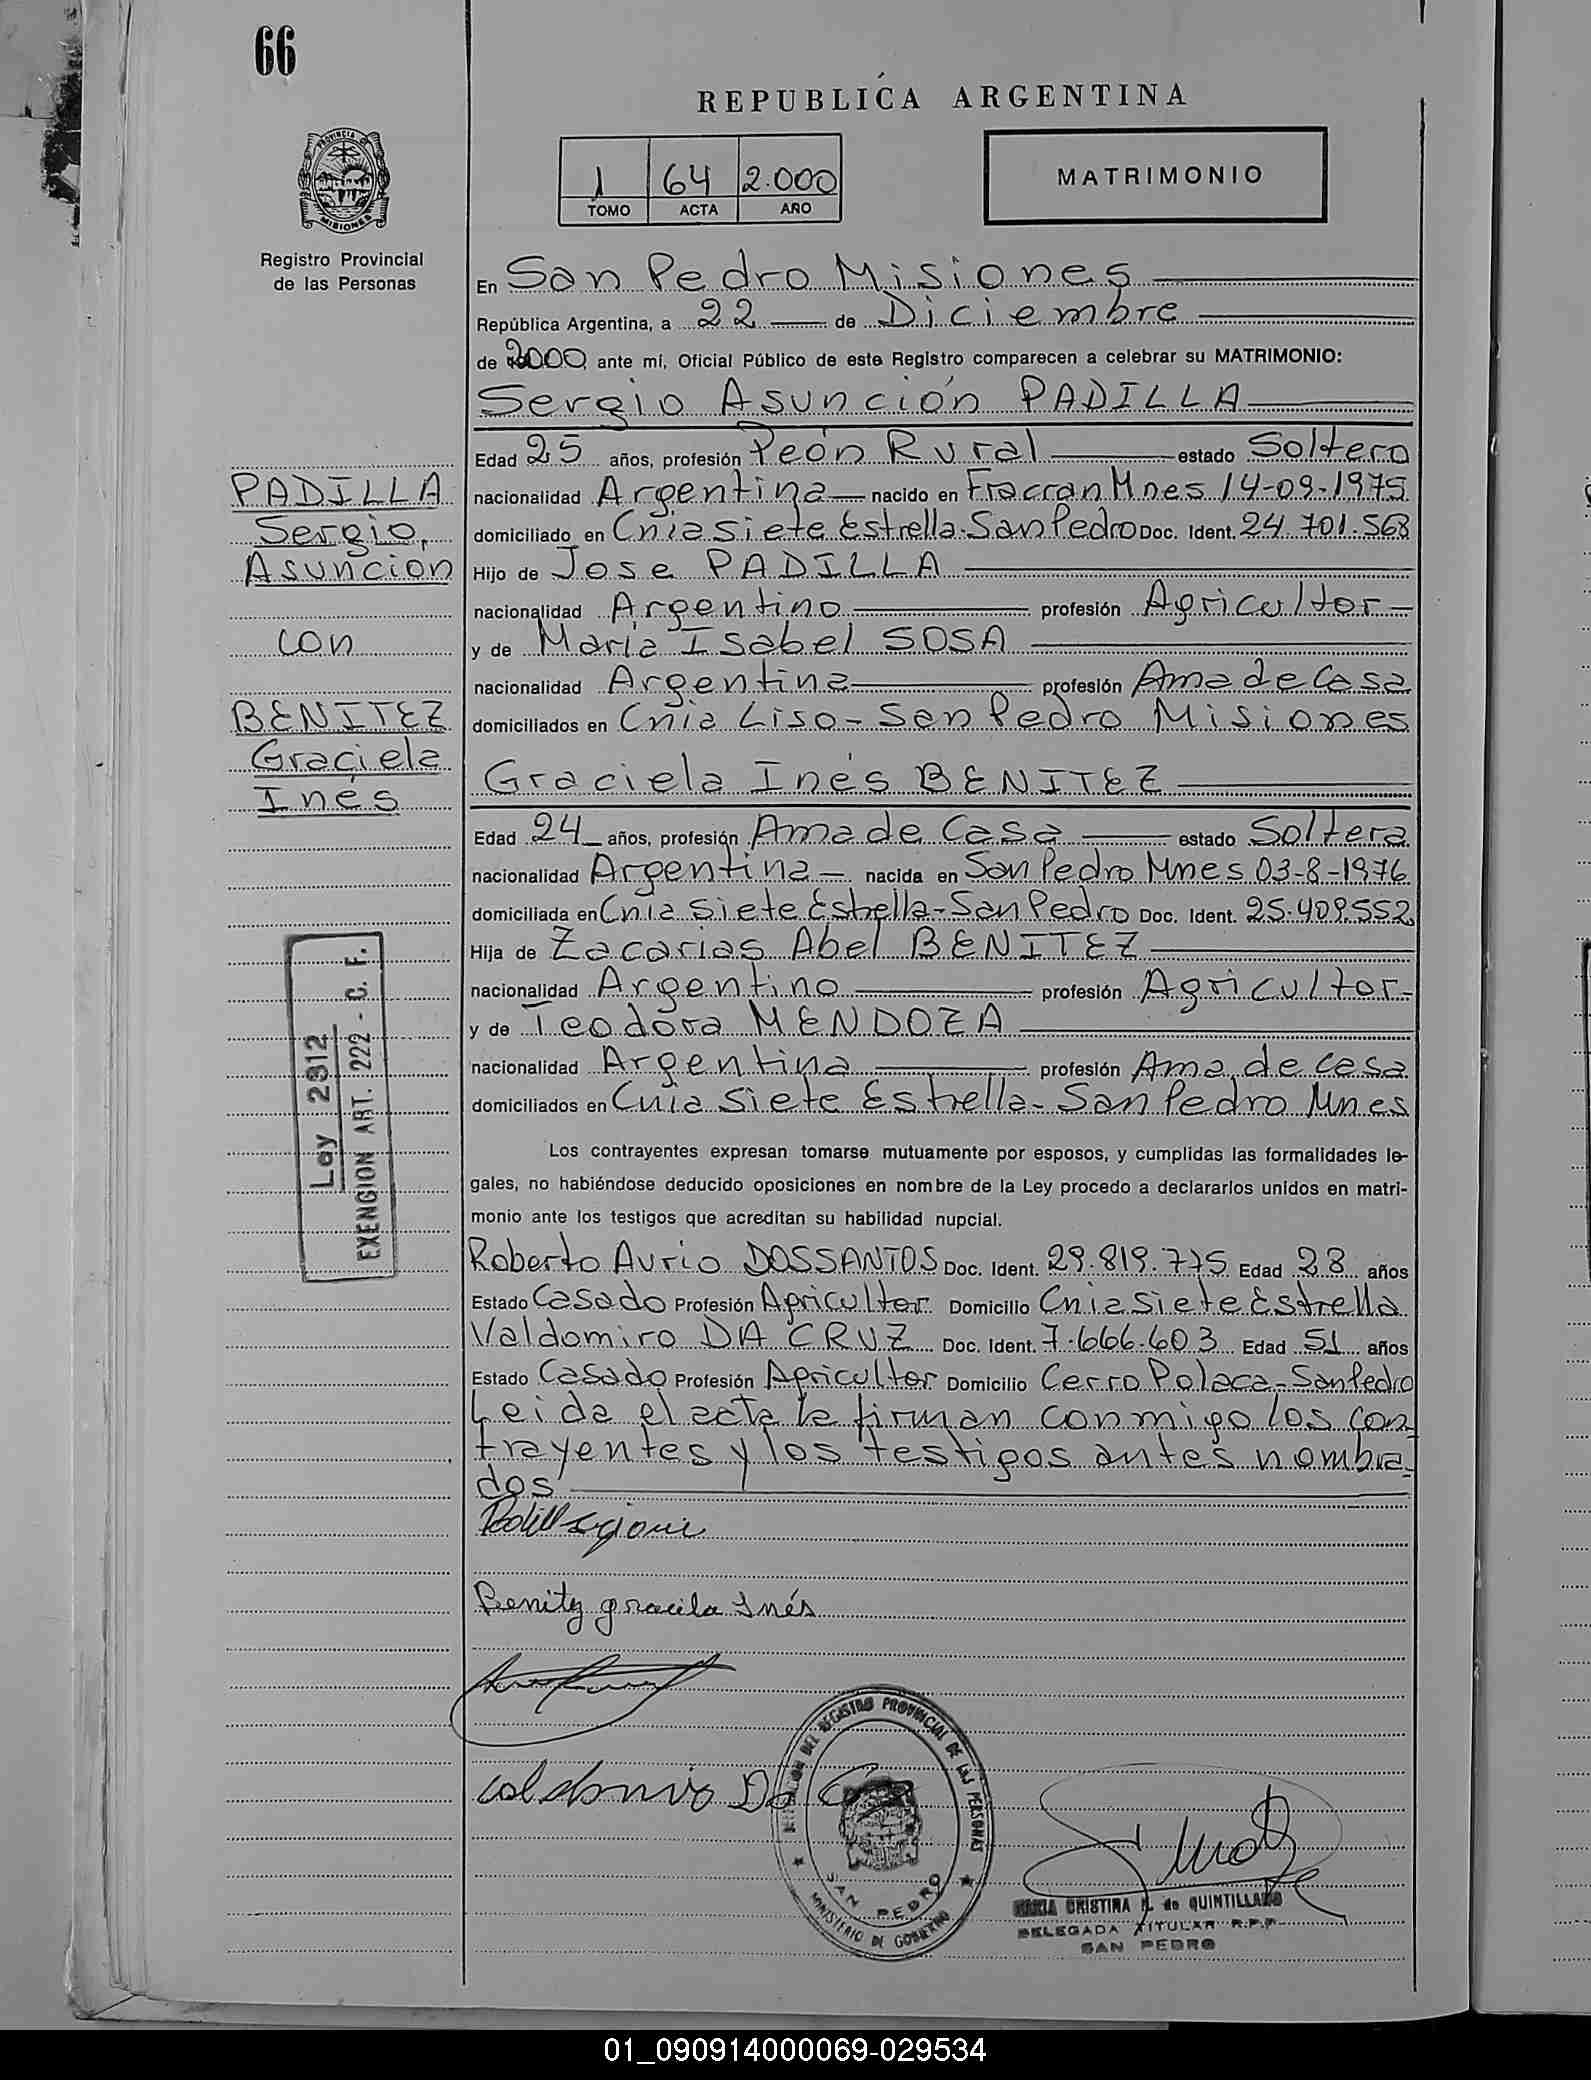 66
REPUBLICA ARGENTINA
1 64 2.000
TOMO ACTA AÑO
MATRIMONIO
PROVINCIA DE
MISIONES
Registro Provincial
de las Personas
En San Pedro Misiones
República Argentina, a 22 de Diciembre
de 2000 ante mí, Oficial Público de este Registro comparecen a celebrar su MATRIMONIO:
Sergio Asunción PADILLA
Edad 25 años, profesión Peón Rural estado Soltero
nacionalidad Argentina nacido en Fracran Mnes 14-09-1975
domiciliado en Cnia Siete Estrella-San Pedro Doc. Ident. 24.701.568
Hijo de Jose PADILLA
nacionalidad Argentino profesión Agricultor
y de María Isabel SOSA
nacionalidad Argentina profesión Ama de Casa
domiciliados en Cnia Liso-San Pedro Misiones
PADILLA
Sergio,
Asuncion
con
BENITEZ
Graciela
Inés
Graciela Inés BENITEZ
Edad 24 años, profesión Ama de Casa estado Soltera
nacionalidad Argentina nacida en San Pedro Mnes 03-8-1976
domiciliada en Cnia Siete Estrella-San Pedro Doc. Ident. 25.409.552
Hija de Zacarias Abel BENITEZ
nacionalidad Argentino profesión Agricultor
y de Teodora MENDOZA
nacionalidad Argentina profesión Ama de Casa
domiciliados en Cnia Siete Estrella-San Pedro Mnes
Ley 2312
EXENCION ART. 222 - C. F.
Los contrayentes expresan tomarse mutuamente por esposos, y cumplidas las formalidades le-
gales, no habiéndose deducido oposiciones en nombre de la Ley procedo a declararlos unidos en matri-
monio ante los testigos que acreditan su habilidad nupcial.
Roberto Aurio DOSSANTOS Doc. Ident. 29.819.775 Edad 23 años
Estado Casado Profesión Agricultor Domicilio Cnia Siete Estrella
Valdomiro DA CRUZ Doc. Ident. 7.666.603 Edad 51 años
Estado Casado Profesión Agricultor Domicilio Cerro Polaca-San Pedro
Leida el acta la firman conmigo los con
trayentes y los testigos antes nombra-
dos
Benitz gracila Inés
DEL REGISTRO PROVINCIAL DE LAS PERSONAS
SAN PEDRO
MINISTERIO DE GOBIERNO
MARIA CRISTINA de QUINTILLANO
DELEGADA TITULAR R.P.P.
SAN PEDRO
01_090914000069-029534